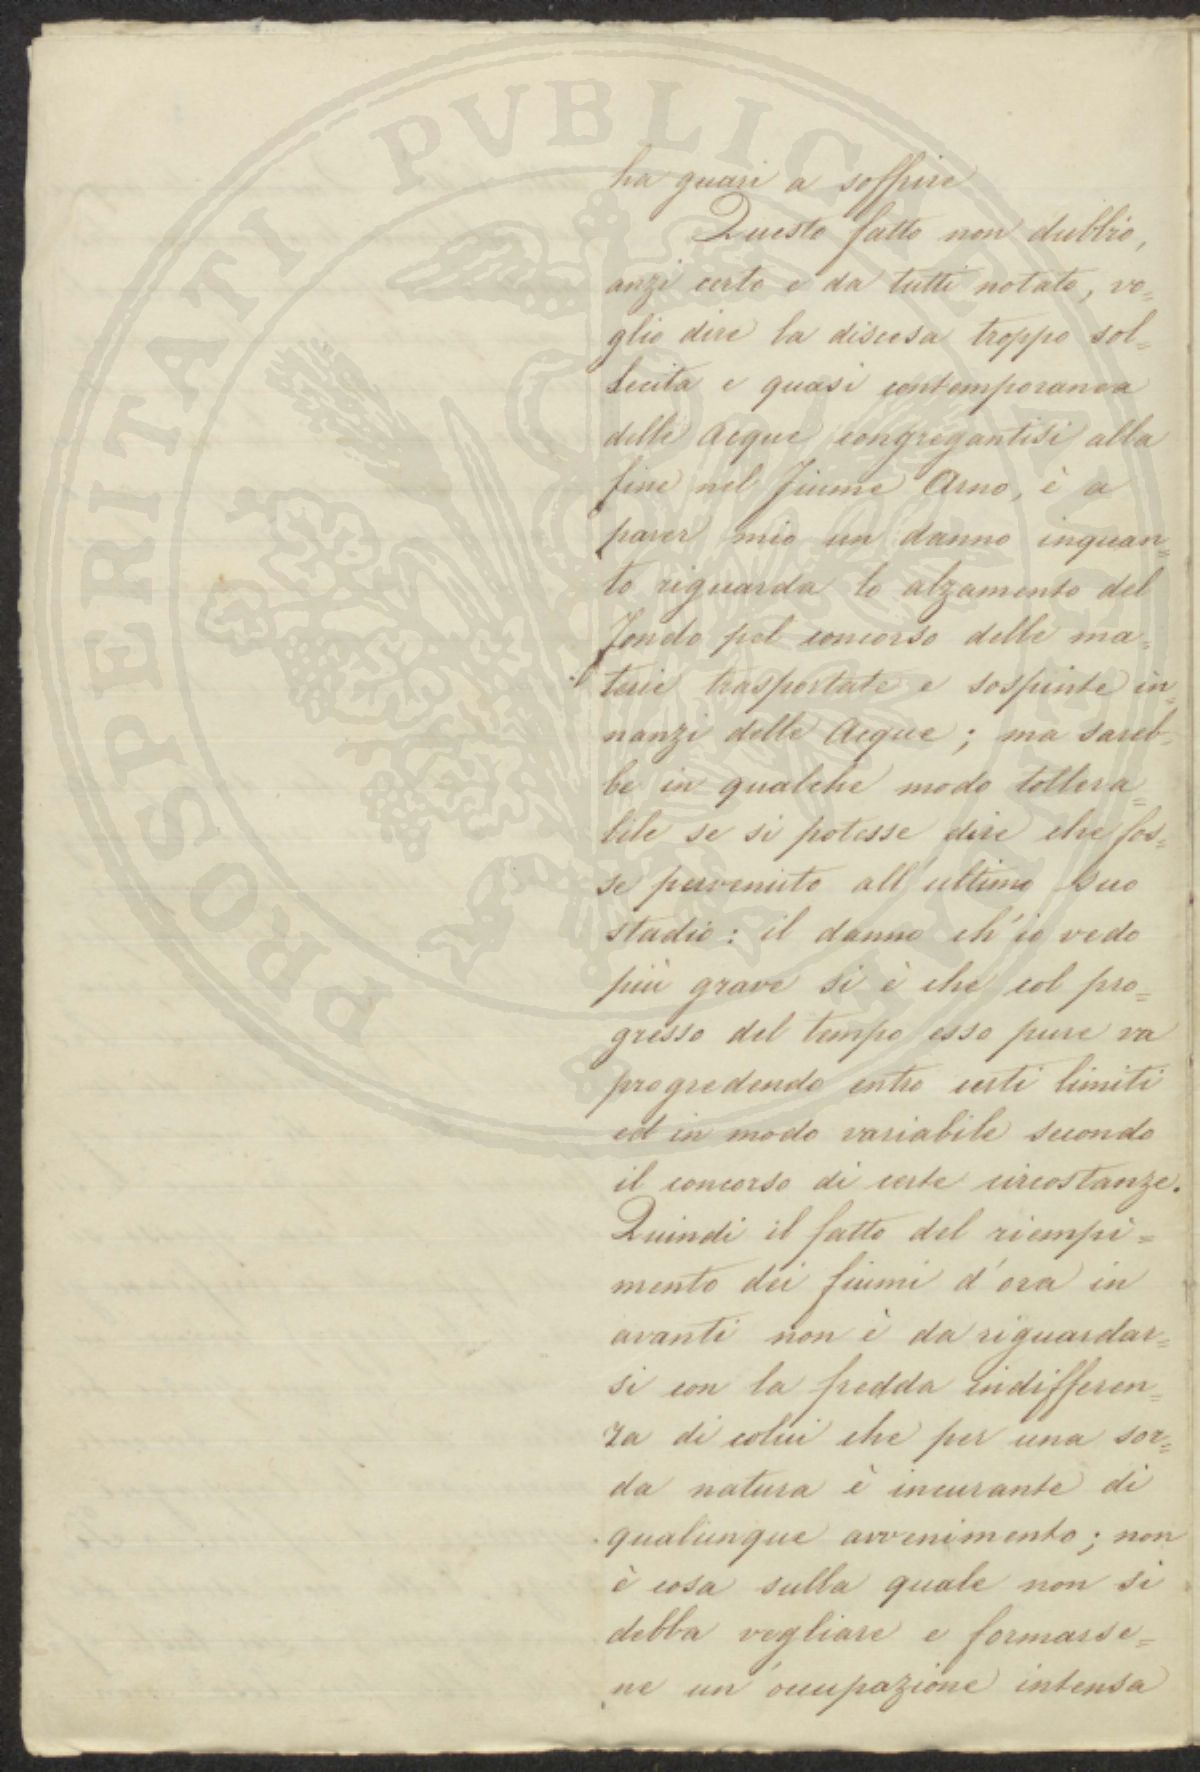 ha guari a soffrire
Questo fatto non dubbio,
anzi certo e da tutti notato, vo=
glio dire la discesa troppo sol=
lecita e quasi contemporanea
delle Acque congregantisi alla
fine nel Fiume Arno, è a
parer mio un danno inquan=
to riguarda lo alzamento del
fondo pel concorso delle ma=
terie trasportate e sospinte in=
nanzi delle Acque; ma sareb=
be in qualche modo tollera=
bile se si potesse dire che fos=
se pervenuto all'ultimo suo
stadio: il danno ch'io vedo
più grave si è che col pro=
gresso del tempo esso pure va
progredendo entro certi limiti
ed in modo variabile secondo
il concorso di certe circostanze.
Quindi il fatto del riempi=
mento dei fiumi d'ora in
avanti non è da riguardar=
si con la fredda indifferen=
za di colui che per una sor=
da natura è incurante di
qualunque avvenimento; non
è cosa sulla quale non si
debba vegliare e formarse=
ne un'occupazione intensa
PROSPERITATI PVBLICAE